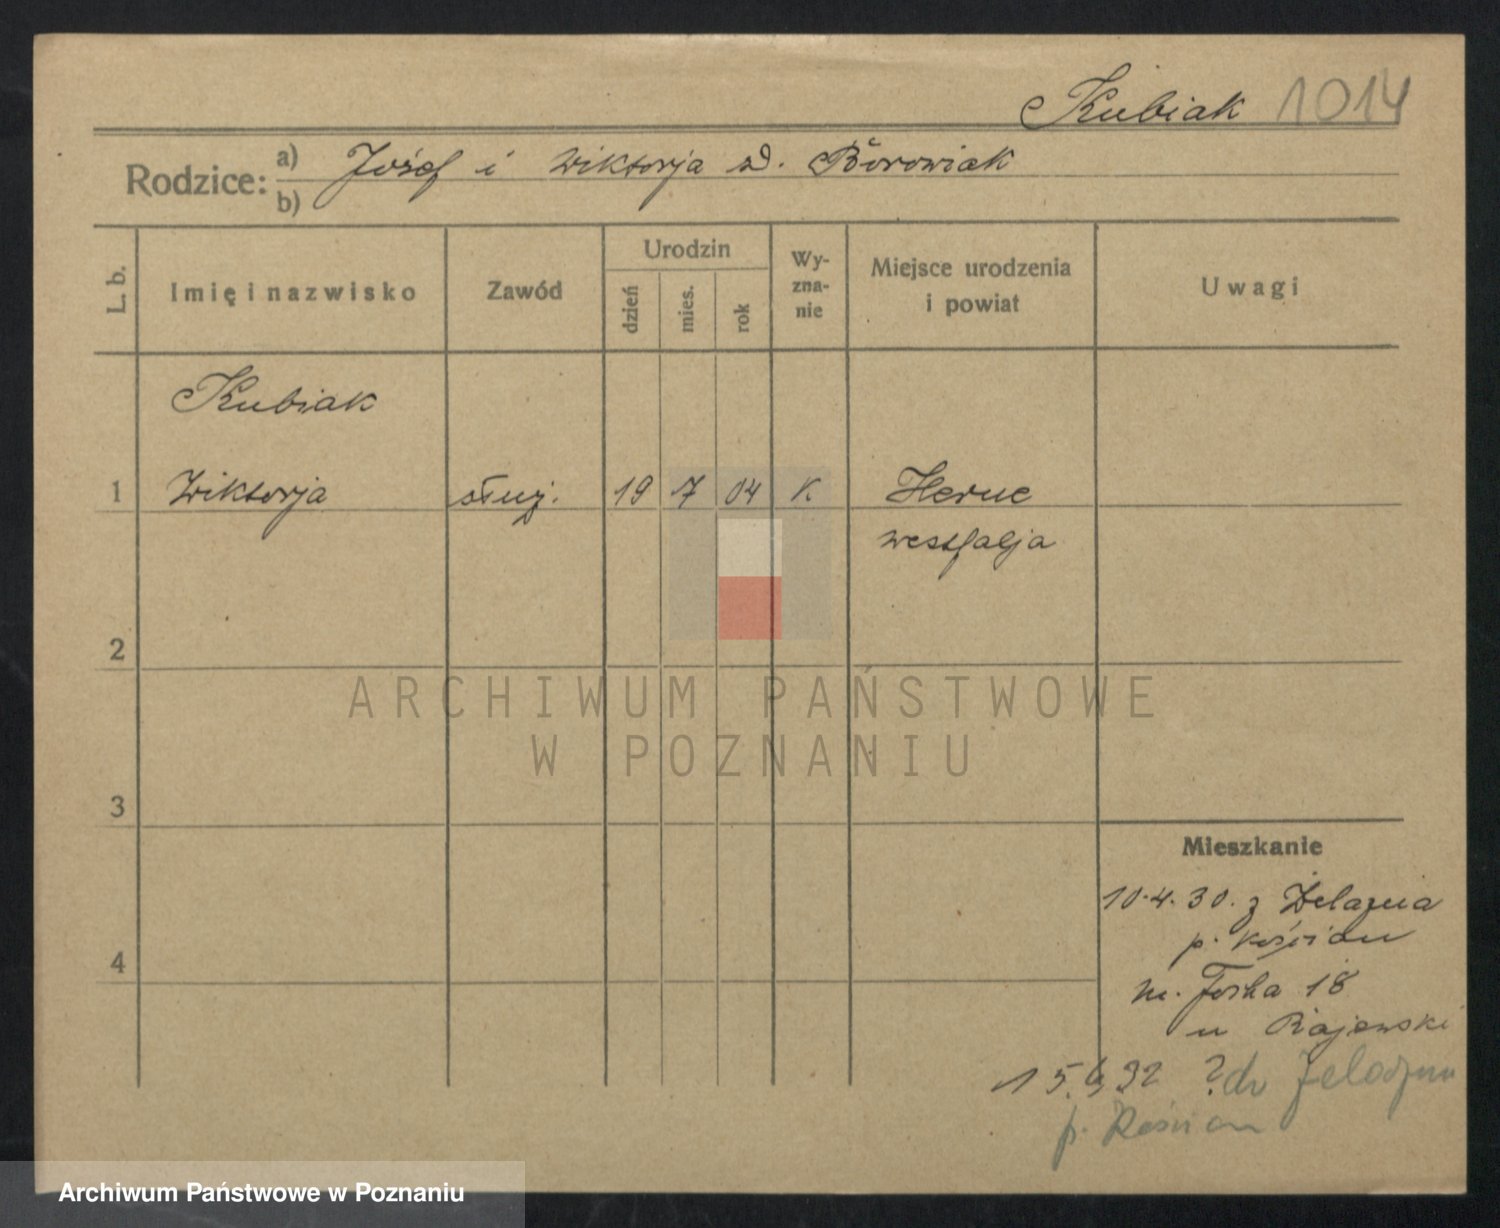 Kubiak 1014
Rodzice: a) Józef i Wiktorja zd. Borowiak
b)
L. b.
Imię i nazwisko
Zawód
Urodzin
dzień
mies.
rok
Wy-
zna-
nie
Miejsce urodzenia
i powiat
Uwagi
Kubiak
1 Wiktorja służ. 19 7 04 K Herne
westfalja
2
ARCHIWUM PAŃSTWOWE
W POZNANIU
3
Mieszkanie
10.4.30. z Żelazna
p. Kościan
4
m. Focha 18
u Rajewski
15. 32 ? do
p. Kościan
Archiwum Państwowe w Poznaniu